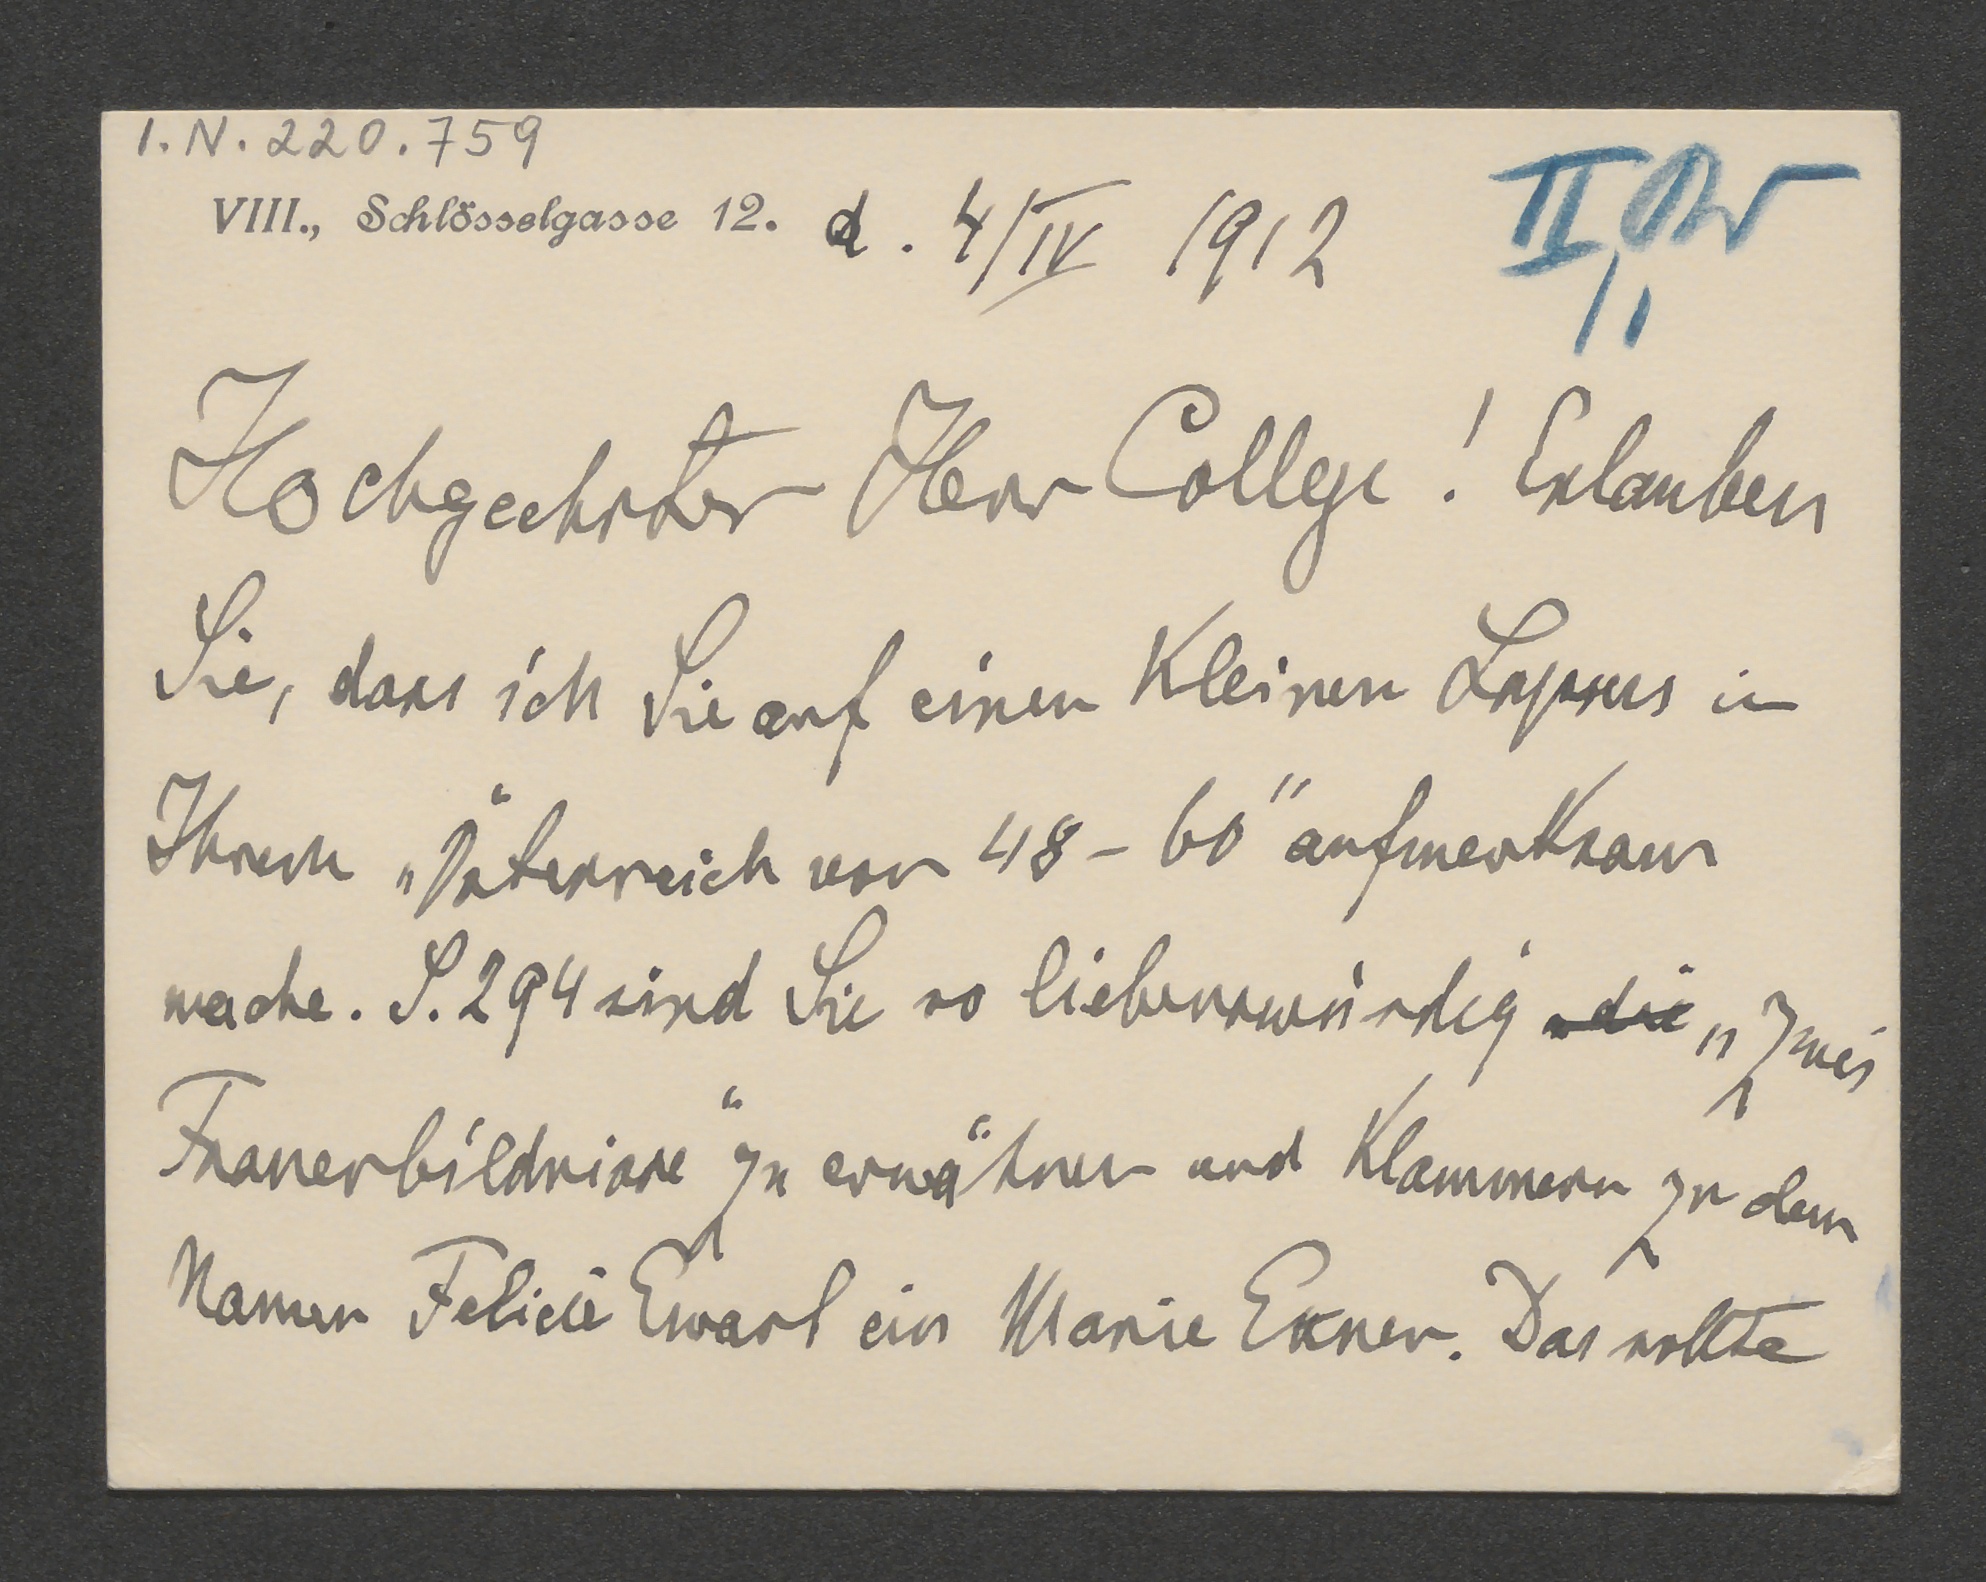 I.N. 220.759
VIII., Schlösselgasse 12. d. 4/IV 1912
II,
Hochgeehrter Herr College! Erlauben
Sie, dass ich Sie auf einen kleinen Lapsus in
Ihrem „Österreich von 48-60" aufmerksam
mache. S. 294 sind Sie so liebenswürdig die „Zwei
Frauenbildnisse" zu erwähnen und klammern zu dem
Namen Felicie Ewart ein Marie Exner. Das sollte